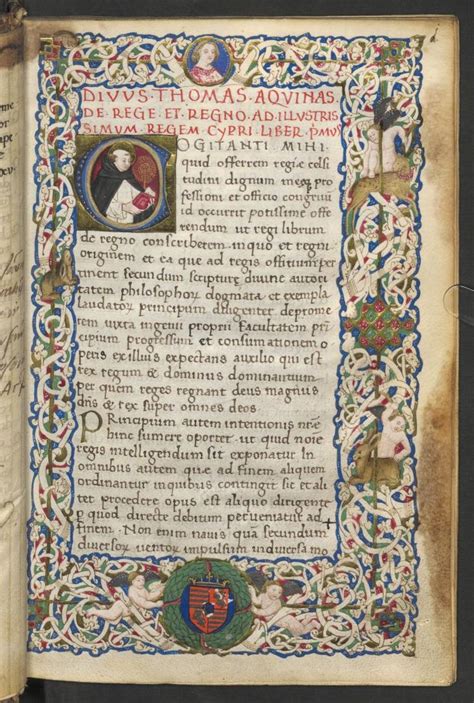 DIVVS · THOMAS · AQVINAS
DE · REGE · ET · REGNO · AD · ILLVSTRIS
SIMVM · REGEM · CYPRI · LIBER · PMVS
COGITANTI MIHI
quid offerrem regiæ celsi
tudini dignum meqʒ pro
fessioni et officio congruū
id occurrit potissime offe
rendum ut regi librum
de regno conscriberem in quo et regni
originem et ea que ad regis offitium per
tinent secundum scripture diuine autori
tatem philosophoꝝ dogmata et exempla
laudatoꝝ principum diligenter deprome
rem iuxta ingenii proprii facultatem prī
cipium progressum et consumationem o
peris ex illius expectans auxilio qui est
rex regum & dominus dominantium
per quem reges regnant deus magnus
dn̄s & rex super omnes deos.
PRincipium autem intentionis nr̄e
hinc sumere oportet ut quid noīe
regis intelligendum sit exponatur In
omnibus autem que ad finem aliquem
ordinantur in quibus contingit sic et ali
ter procedere opus est aliquo dirigente
ꝑ quod directe debitum perueniatur ad
finem · Non enim nauis quā secundum
diuersoꝝ uentoꝝ impulsum in diuersa mo